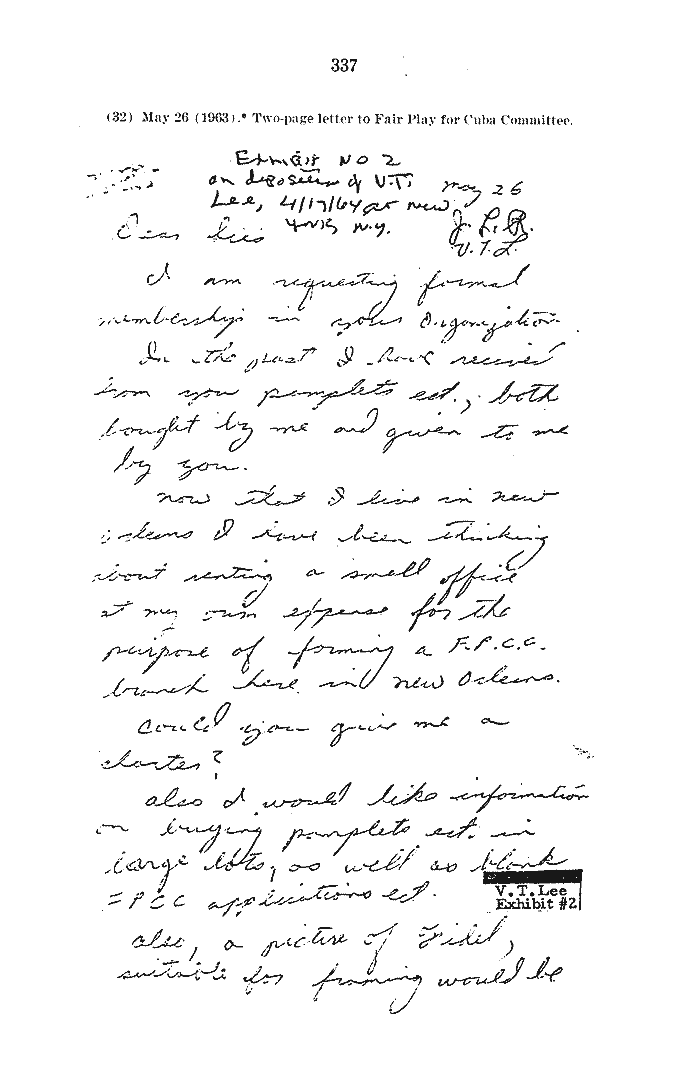 337
(32) May 26 (1963).* Two-page letter to Fair Play for Cuba Committee.
Exhibit No 2
on deposition of V.T. May 26
Lee, 4/17/64 at New
York N.Y. J. L. R.
Dear Sirs V. T. L.
I am requesting formal
membership in your Organization.
In the past I have received
from you pamplets ect., both
bought by me and given to me
by you.
Now that I live in New
Orleans I have been thinking
about renting a small office
at my own expense for the
purpose of forming a F.P.C.C.
branch here in New Orleans.
Could you give me a
charter?
Also I would like information
on buying pamplets ect. in
large lots, as well as blank
FPCC applications ect.
V. T. Lee
Exhibit #2
Also, a picture of Fidel,
suitable for framing would be